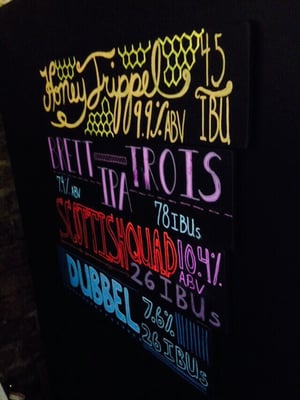 Honey Trippel 45
9.9% ABV IBU
BRETT TROIS
IPA
7% ABV 78 IBUs
SCOTTISH QUAD 10.4%
ABV
26 IBUs
DUBBEL 7.6%
26 IBUs